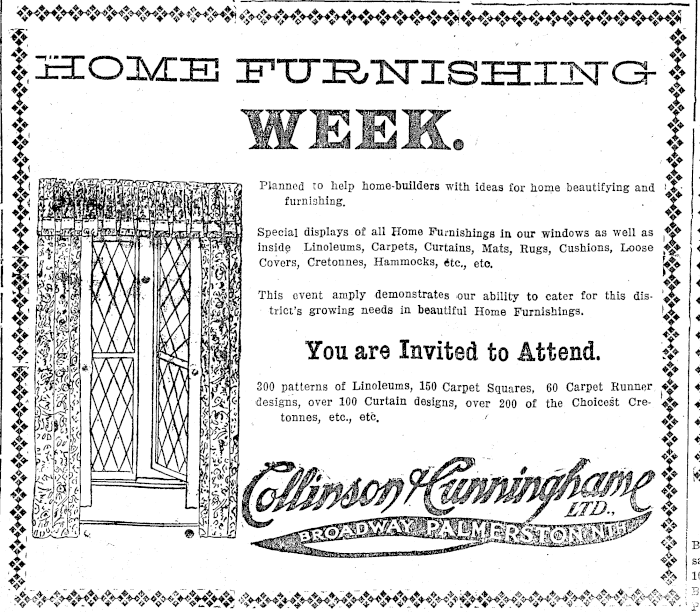 HOME FURNISHING
WEEK.
Planned to help home-builders with ideas for home beautifying and
furnishing.
Special displays of all Home Furnishings in our windows as well as
inside Linoleums, Carpets, Curtains, Mats, Rugs, Cushions, Loose
Covers, Cretonnes, Hammocks, etc., etc.
This event amply demonstrates our ability to cater for this dis-
trict's growing needs in beautiful Home Furnishings.
You are Invited to Attend.
300 patterns of Linoleums, 150 Carpet Squares, 60 Carpet Runner
designs, over 100 Curtain designs, over 200 of the Choicest Cre-
tonnes, etc., etc.
Collinson & Cunninghame
LTD.,
BROADWAY, PALMERSTON NTH